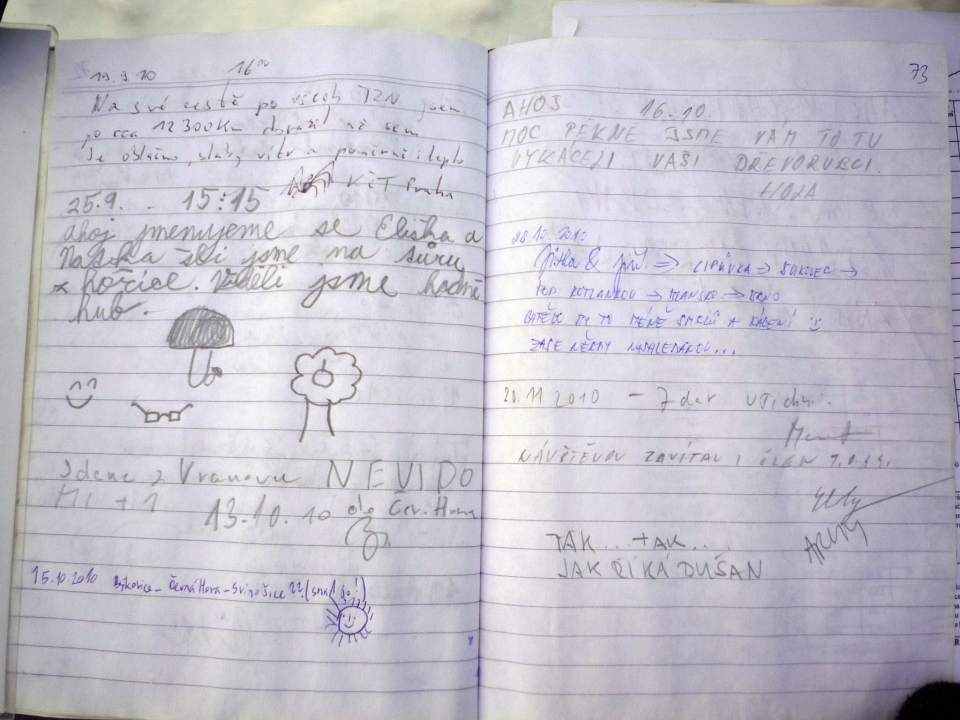 19.9.10 16⁰⁰
Na své cestě po všech TZN jsem
po cca 12 300 Km dorazil až sem
Je oblačno, slabý vítr a poměrně i teplo
KČT Praha
25.9. - 15:15
ahoj jmenujeme se Eliška a
Nataska šli jsme na
hořice. Viděli jsme hodně
hub.
Jdeme z Vranova NEVIDO
MI + 1 13.10.10 do Čer. Hora
15.10.2010 Býkovice - Černá Hora - Svinošice ?? (snad jo!)
73
AHOJ 16.10.
MOC PĚKNĚ JSME VÁM TO TU
VYKÁCELI VAŠI DŘEVORUBCI.
HOJA
28.10.2010
Jitka & => LIPŮVKA => =>
POD KOTLANKOU -> BLANSKO -> BRNO
CHTĚLO BY TO MÉNĚ SMRKŮ A KÁCENÍ
ZASE NĚKDY NASHLEDANOU...
20.11.2010 - Zdar všichni.
NÁVŠTĚVOU ZAVÍTAL I ČLEN
TAK... TAK...
JAK ŘÍKÁ DUŠAN